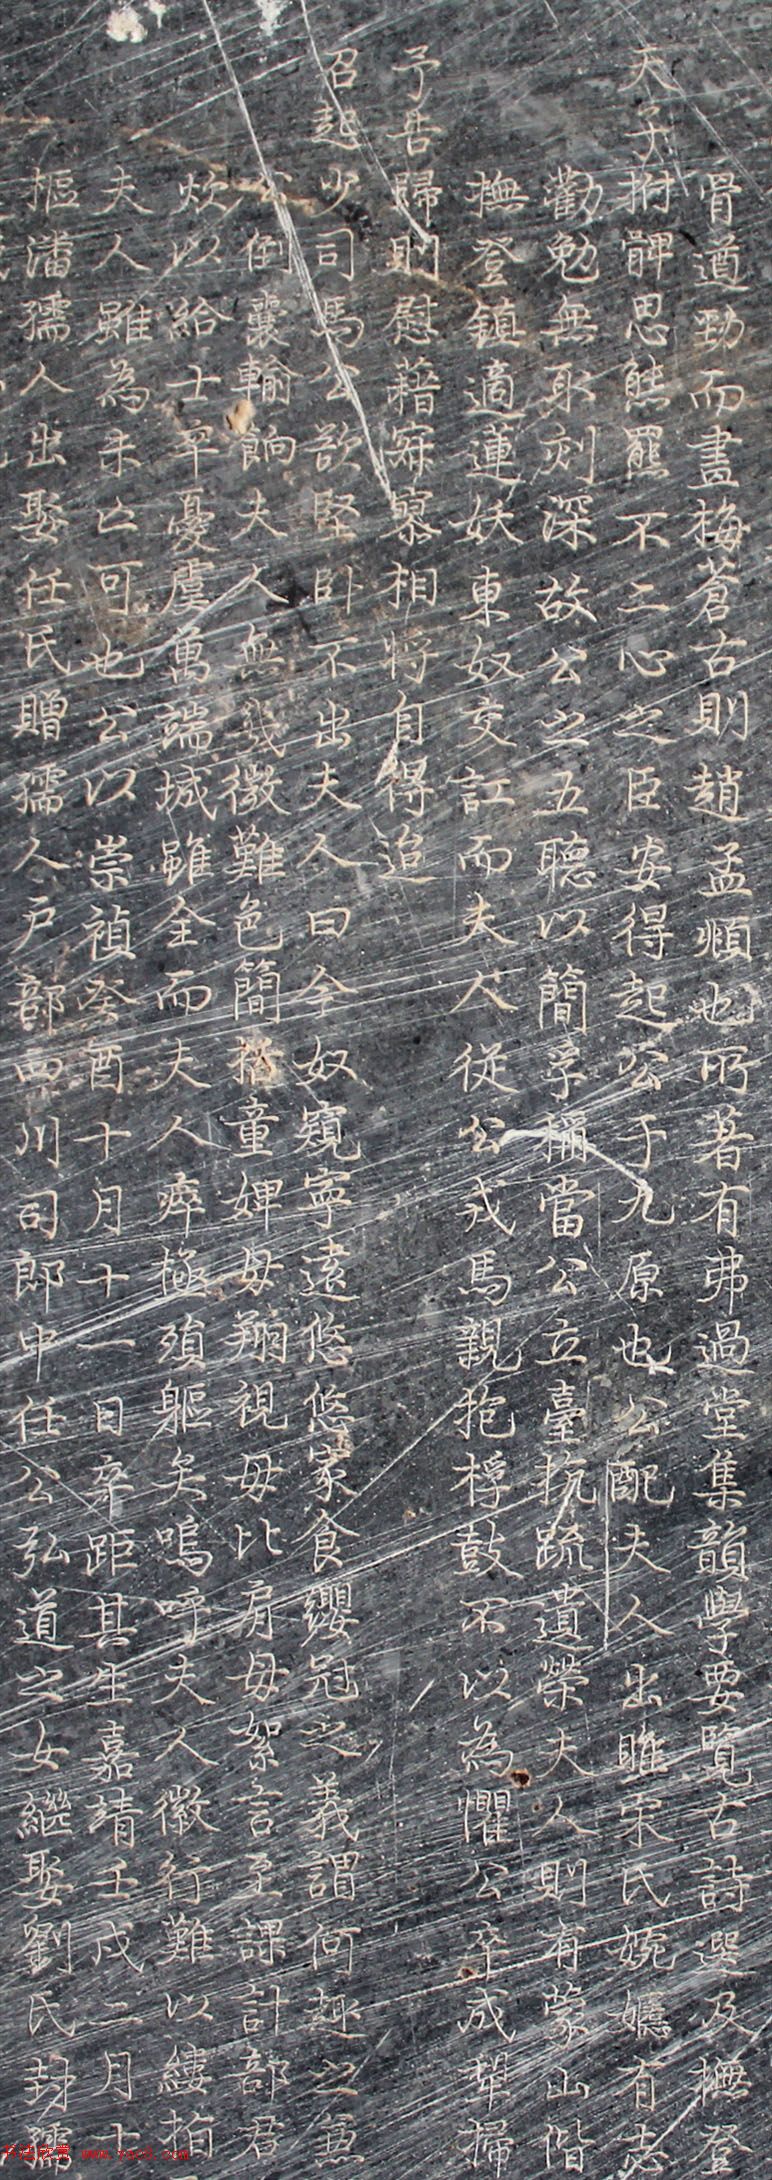 骨遒勁而畫梅蒼古則趙孟頫也所著有弗過堂集韻學要覽古詩選及撫登
天子拊髀思熊羆不二心之臣安得起公于九原也公配夫人出睢宋氏婉嫕有志
勸勉無取刻深故公之五聽以簡孚稱當公立臺抗疏遺榮夫人則有蒙山偕
撫登鎮適蓮妖東奴交訌而夫人從公戎馬親抱桴鼓不以為懼公卒成犂掃
予告歸則慰藉寂寞相將自得迨
召起少司馬公欲堅卧不出夫人曰今奴窺寧遠悠悠家食纓冠之義謂何趣之
公倒囊輸餉夫人無幾微難色簡括童婢毋翔視毋比肩毋絮言至課計部君
炊以給士卒憂虞萬端城雖全而夫人瘁極殞軀矣嗚呼夫人徽行難以縷
夫人雖為未亡可也公以崇禎癸酉十月十一日卒距其生嘉靖壬戌二月十
樞潘孺人出娶任氏贈孺人戶部四川司郎中任公弘道之女繼娶劉氏封孺
书法欣赏 www.yac8.com